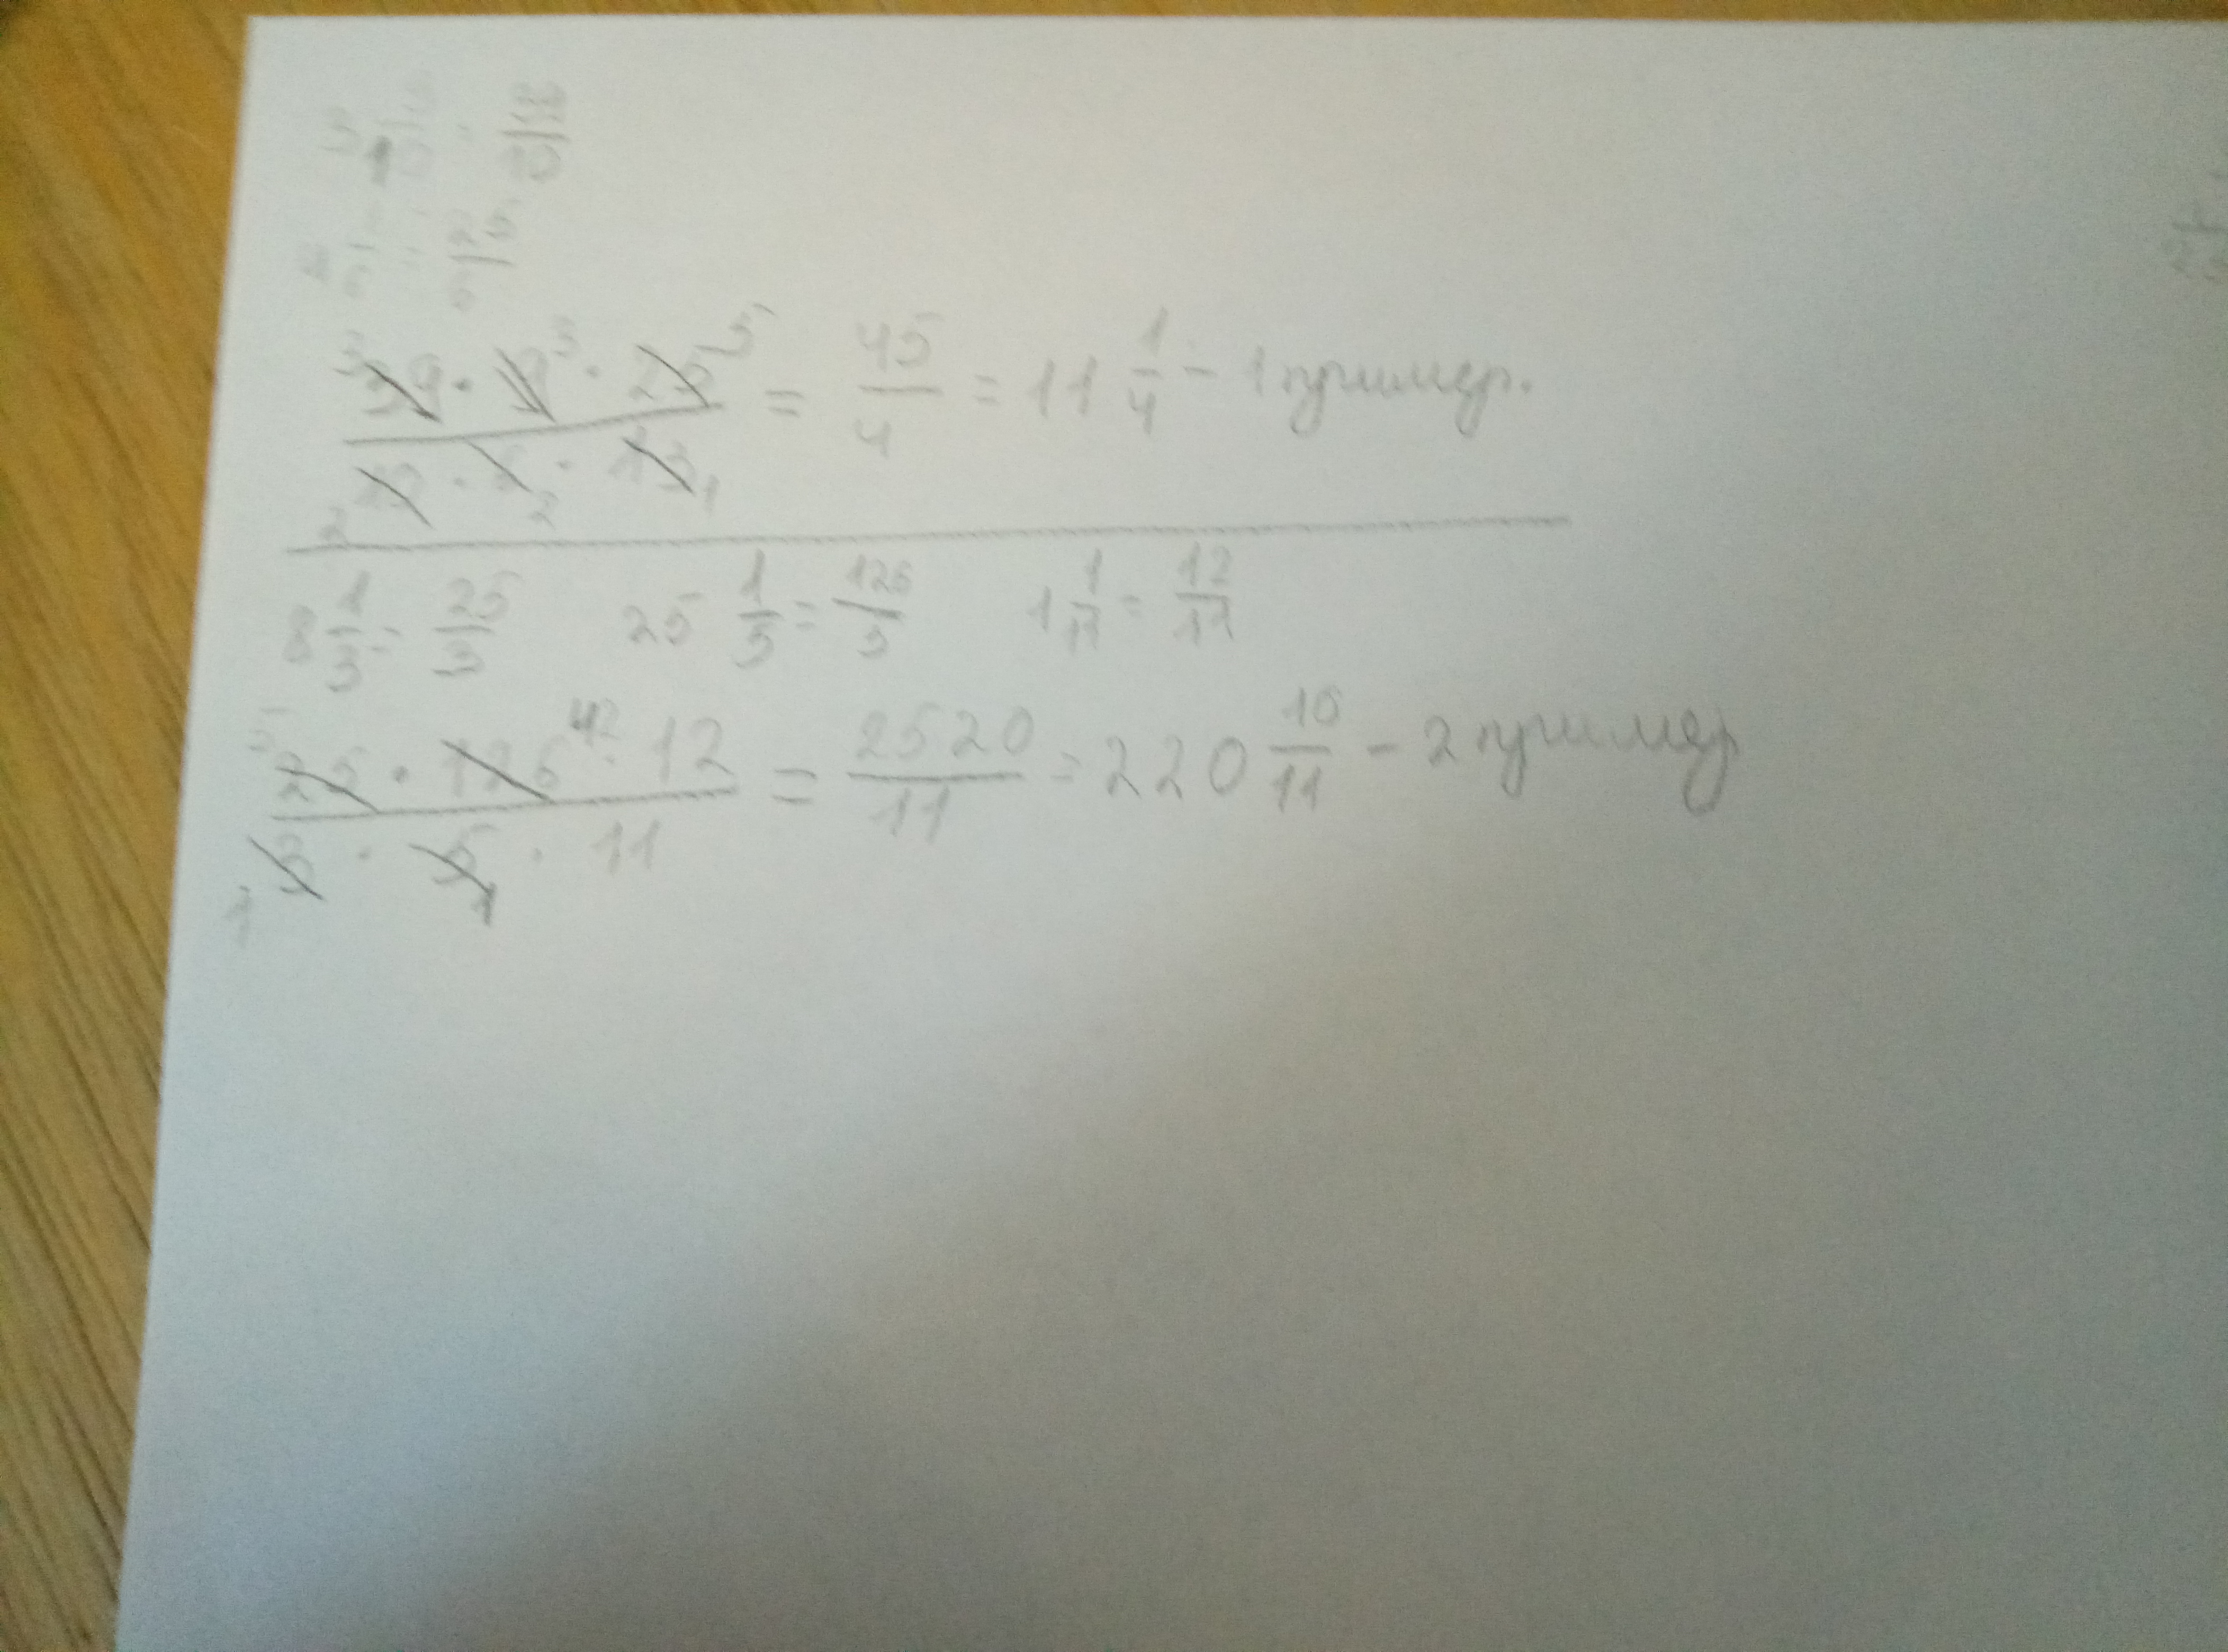 3 9/10 = 39/10
4 1/6 = 25/6
39 · 9 · 25 / 10 · 6 · 13 = 45/4 = 11 1/4 - 1 пример.
3 3 5
2 2 1
8 1/3 = 25/3 25 1/5 = 126/5 1 1/11 = 12/11
5 42
25 · 126 · 12 / 3 · 5 · 11 = 2520/11 = 220 10/11 - 2 пример
1 1